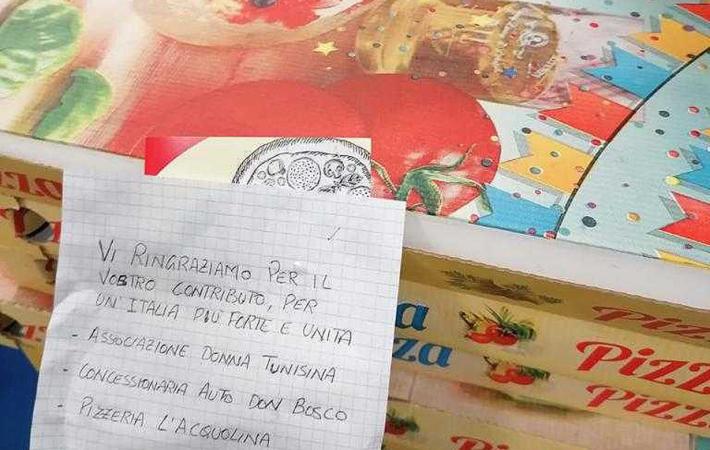 VI RINGRAZIAMO PER IL
VOSTRO CONTRIBUTO, PER
UN'ITALIA PIÙ FORTE E UNITA
- ASSOCIAZIONE DONNA TUNISINA
- CONCESSIONARIA AUTO DON BOSCO
- PIZZERIA L'ACQUOLINA
Pizz
za
Pizz
Pizz
Pizza